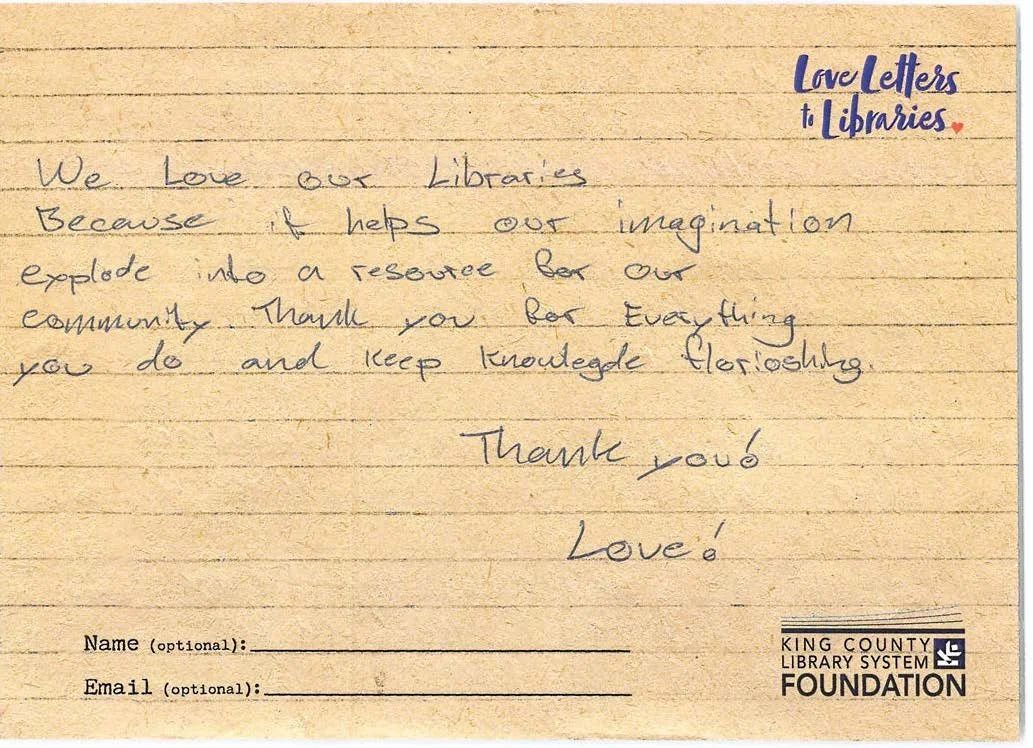 Love Letters
to Libraries
We Love our Libraries
Because it helps our imagination
explode into a resource for our
community. Thank you for Everything
you do and keep knowlegde florioshing.
Thank you!
Love!
Name (optional):
Email (optional):
KING COUNTY
LIBRARY SYSTEM
FOUNDATION